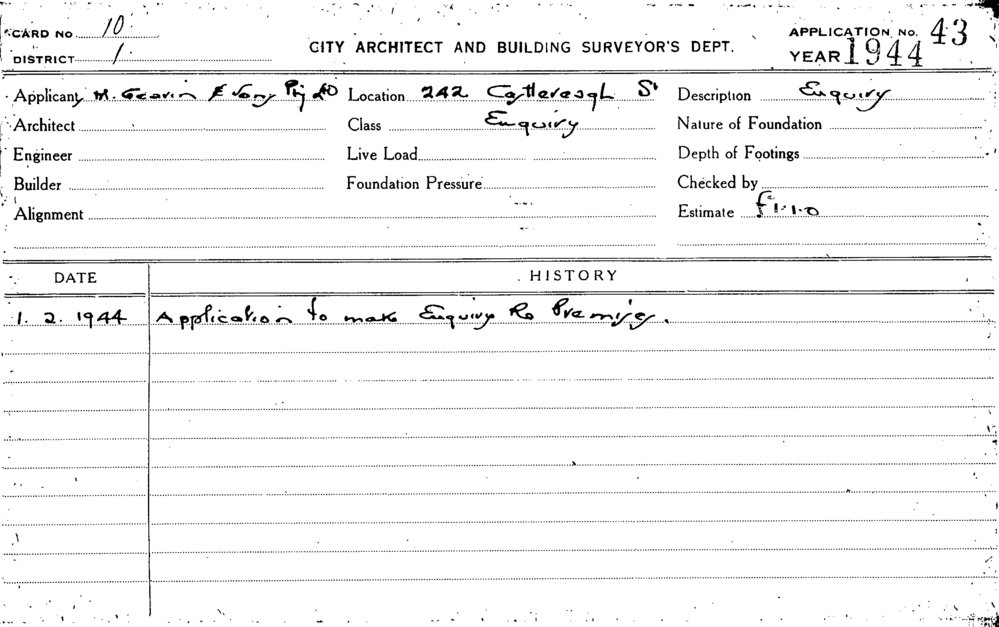 CARD No 10
APPLICATION No. 43
DISTRICT 1
CITY ARCHITECT AND BUILDING SURVEYOR'S DEPT.
YEAR 1944
Applicant M. & Sons Pty Ld
Location 242 Castlereagh St
Description Enquiry
Architect
Class Enquiry
Nature of Foundation
Engineer
Live Load
Depth of Footings
Builder
Foundation Pressure
Checked by
Alignment
Estimate £1.1.0
DATE
HISTORY
1. 2. 1944 Application to make Enquiry Re Premises.